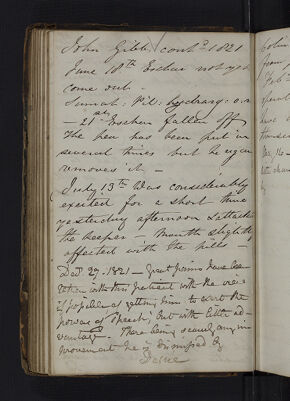 John Gibb, cont.d 1821
June 18th Eschar not yet
come out
Sumat: Pil: hydrarg: o.n
— 21st Eschar fallen off
The pea has been put in
several times but he again
removes it —
July 13th Was considerably
excited for a short time
yesterday afternoon & attack
the keeper — Mouth slightly
affected with the pills —
Decr 29. 1821 — Great pains have been
taken with this patient with the view
if possible of getting him to exert the
powers of speech, but with little ad-
vantage. There being scarcely any im-
provement he is dismissed by
Desire